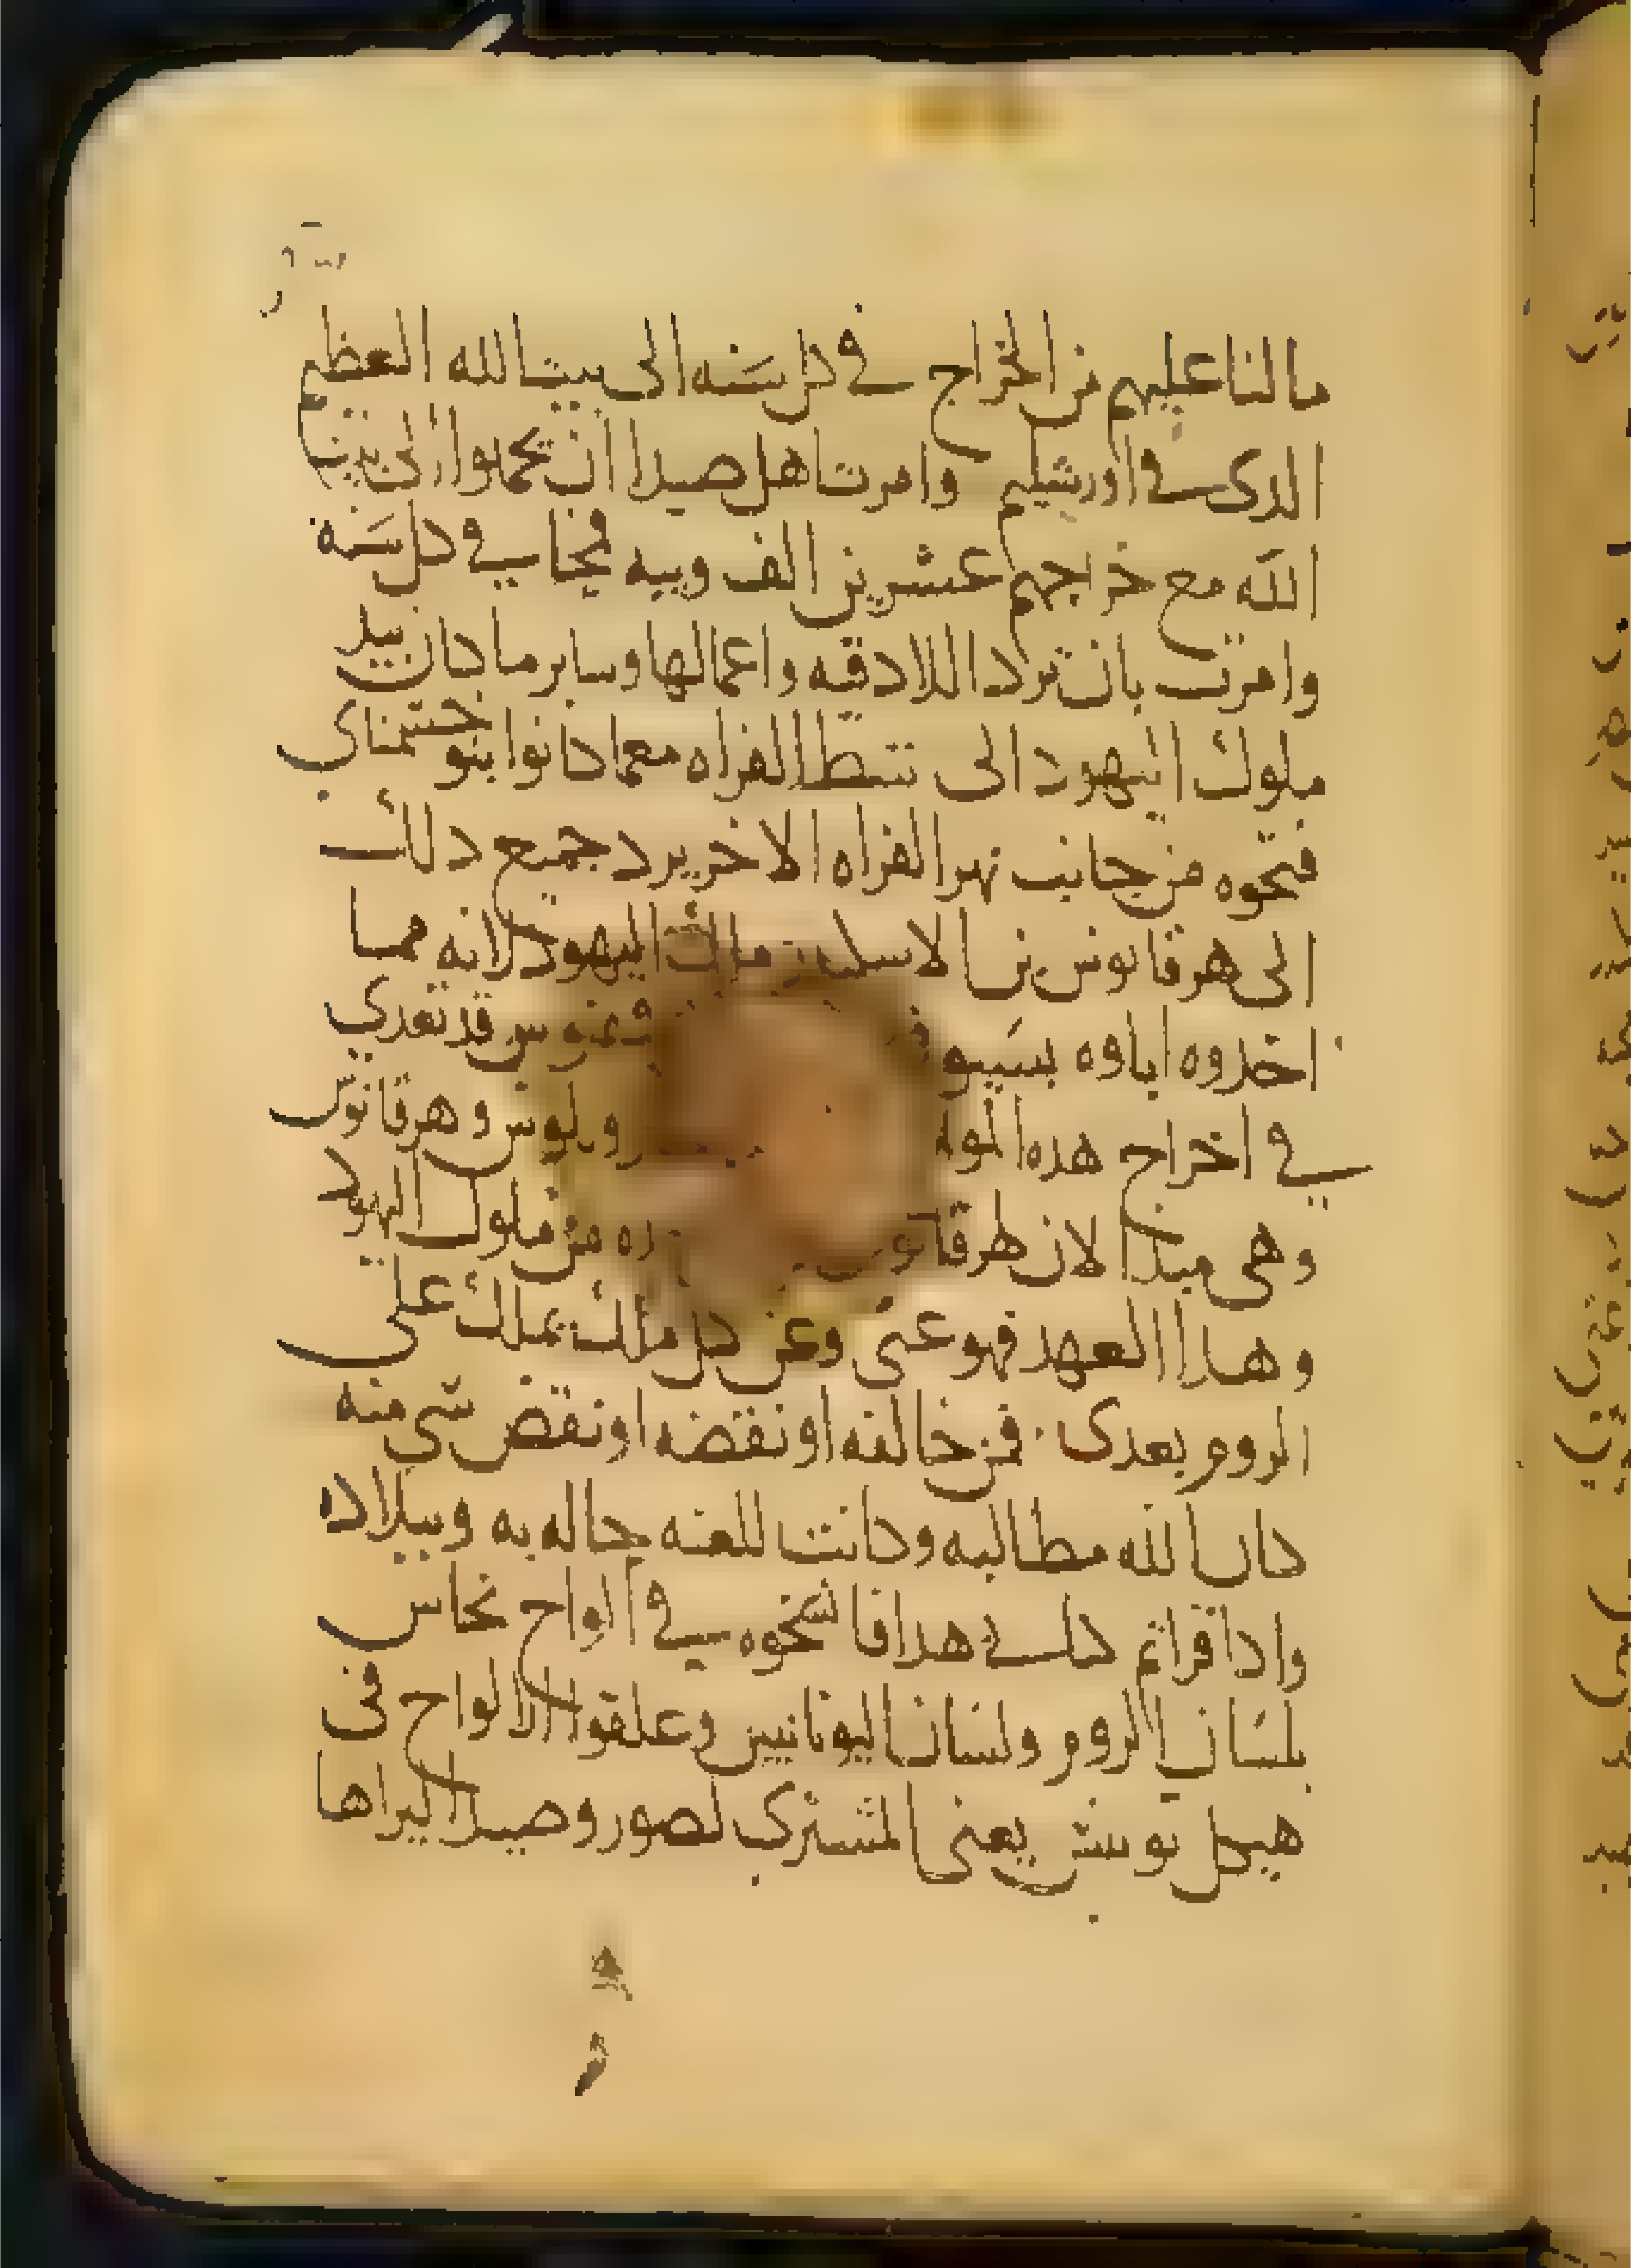 ما لنا عليهم من الخراج في كل سنه الى بيت الله العظيم
الدى في اورشليم وامرت اهل صيدا ان يحملوا الى بيت
الله مع خراجهم عشرين الف ويبه قمحا في كل سنه
وامرت بان ترد اللادقيه واعمالها وساير ما كان بيد
ملوك اليهود الى شط الفراه معما كانوا بنو حشمناي
فتحوه من جانب نهر الفراه الاخر يرد جميع دلك
الى هرقانوس ملك اليهود لانه مما
اخدوه اباوه بسيو قد تعدي
في اخراج هده وهرقانوس
وهى مبدا لان هرقا من ملوك اليهود
وهدا العهد فهو عنى وعن كل ملك يملك على
الروم بعدى فمن خالفه او نقضه او نقض شي منه
كان الله مطالبه وكانت اللعنه حاله به وببلاده
وادا قراتم كتابي هدا فانسخوه في الواح نحاس
بلسان الروم ولسان اليونانيين وعلقوا الالواح فى
هيكل يعنى المشترى لصور وصيدا ليراها